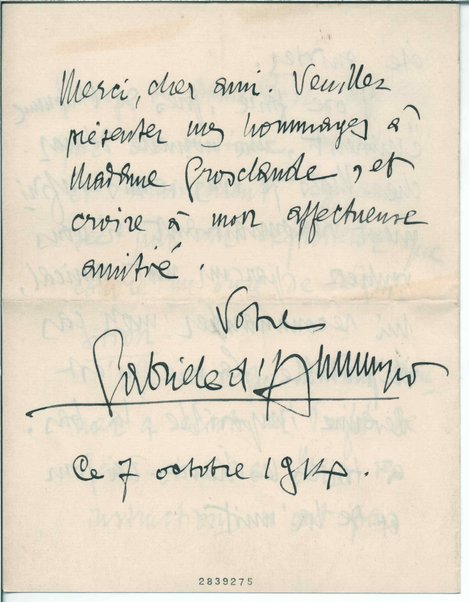 Merci, cher ami. Veuillez
présenter mes hommages à
Madame Grosclaude, et
croire à mon affectueuse
amitié.
Votre
Gabriele d'Annunzio
Ce 7 octobre 1914.
2839275